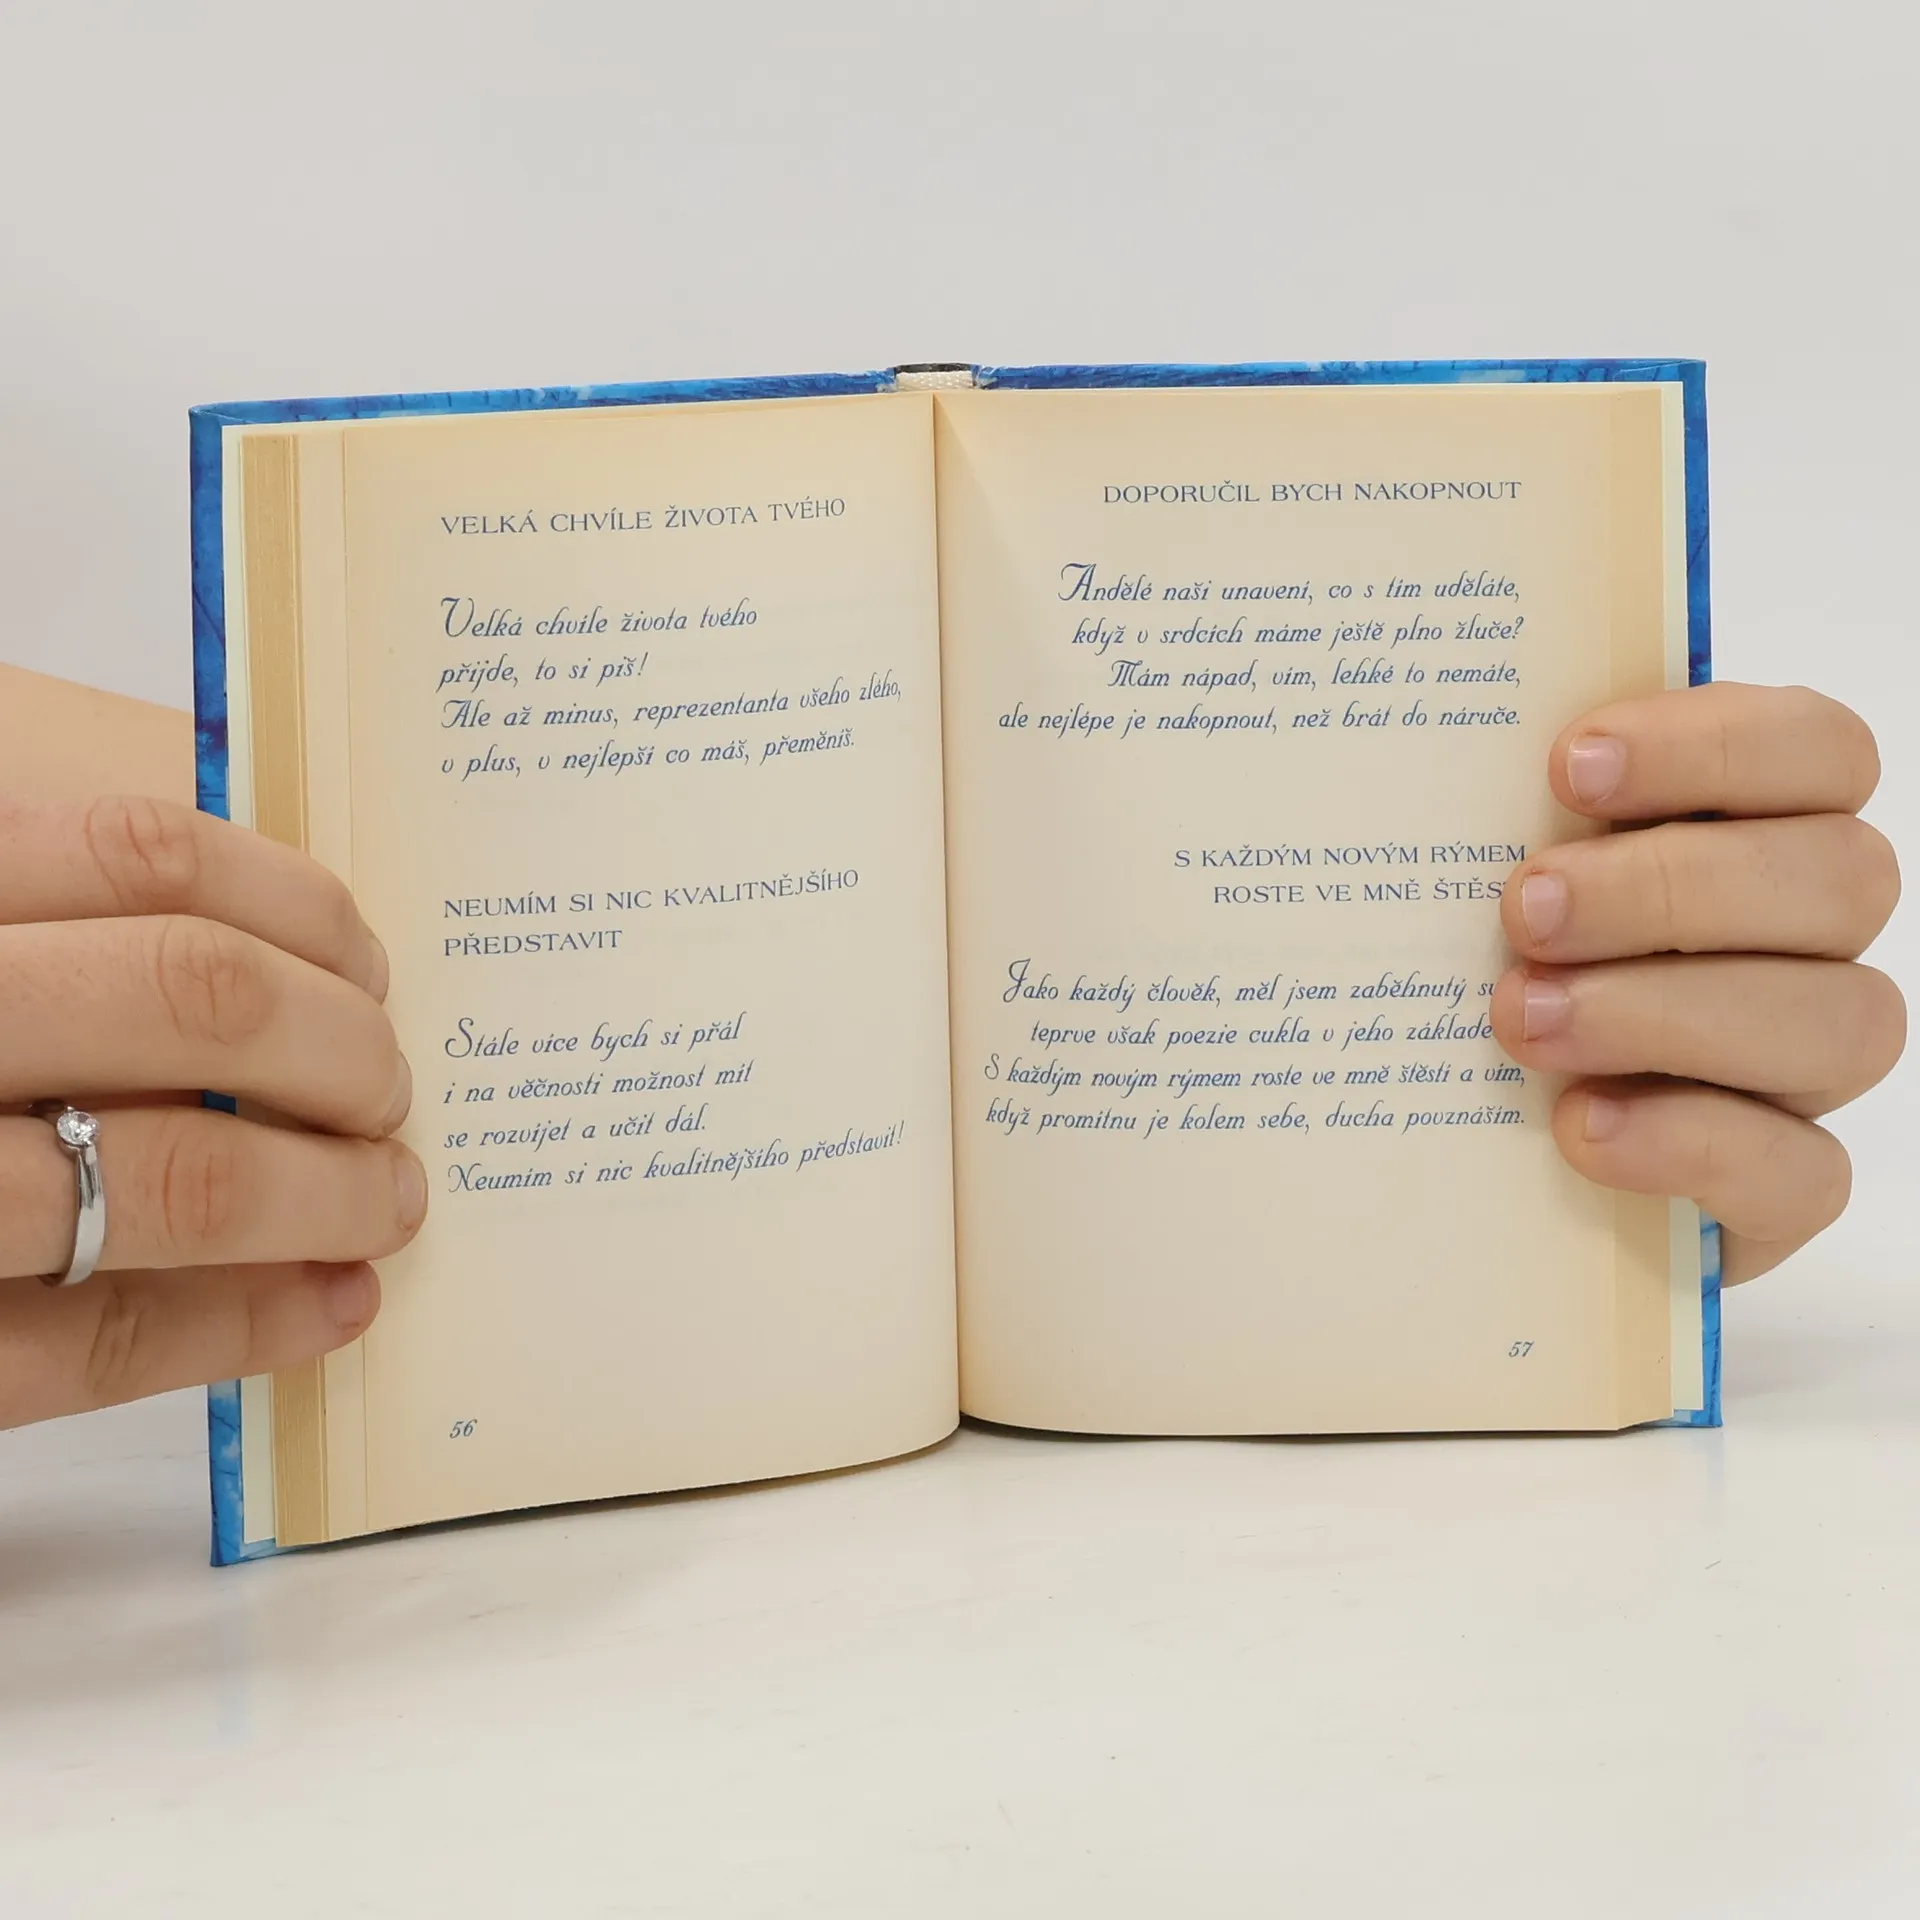 VELKÁ CHVÍLE ŽIVOTA TVÉHO
Velká chvíle života tvého
přijde, to si piš!
Ale až minus, reprezentanta všeho zlého,
v plus, v nejlepší co máš, přeměníš.
NEUMÍM SI NIC KVALITNĚJŠÍHO
PŘEDSTAVIT
Stále více bych si přál
i na věčnosti možnost mít
se rozvíjet a učit dál.
Neumím si nic kvalitnějšího představit!
56
DOPORUČIL BYCH NAKOPNOUT
Andělé naši unavení, co s tím uděláte,
když v srdcích máme ještě plno žluče?
Mám nápad, vím, lehké to nemáte,
ale nejlépe je nakopnout, než brát do náruče.
S KAŽDÝM NOVÝM RÝMEM
ROSTE VE MNĚ
Jako každý člověk, měl jsem zaběhnutý
teprve však poezie cukla v jeho
S každým novým rýmem roste ve mně štěstí a vím,
když promítnu je kolem sebe, ducha povznáším.
57